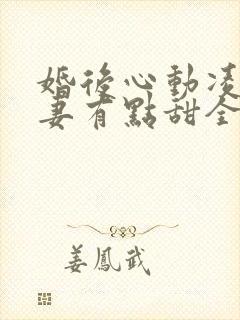 婚後心動凌
妻有點甜全
姜鳳武